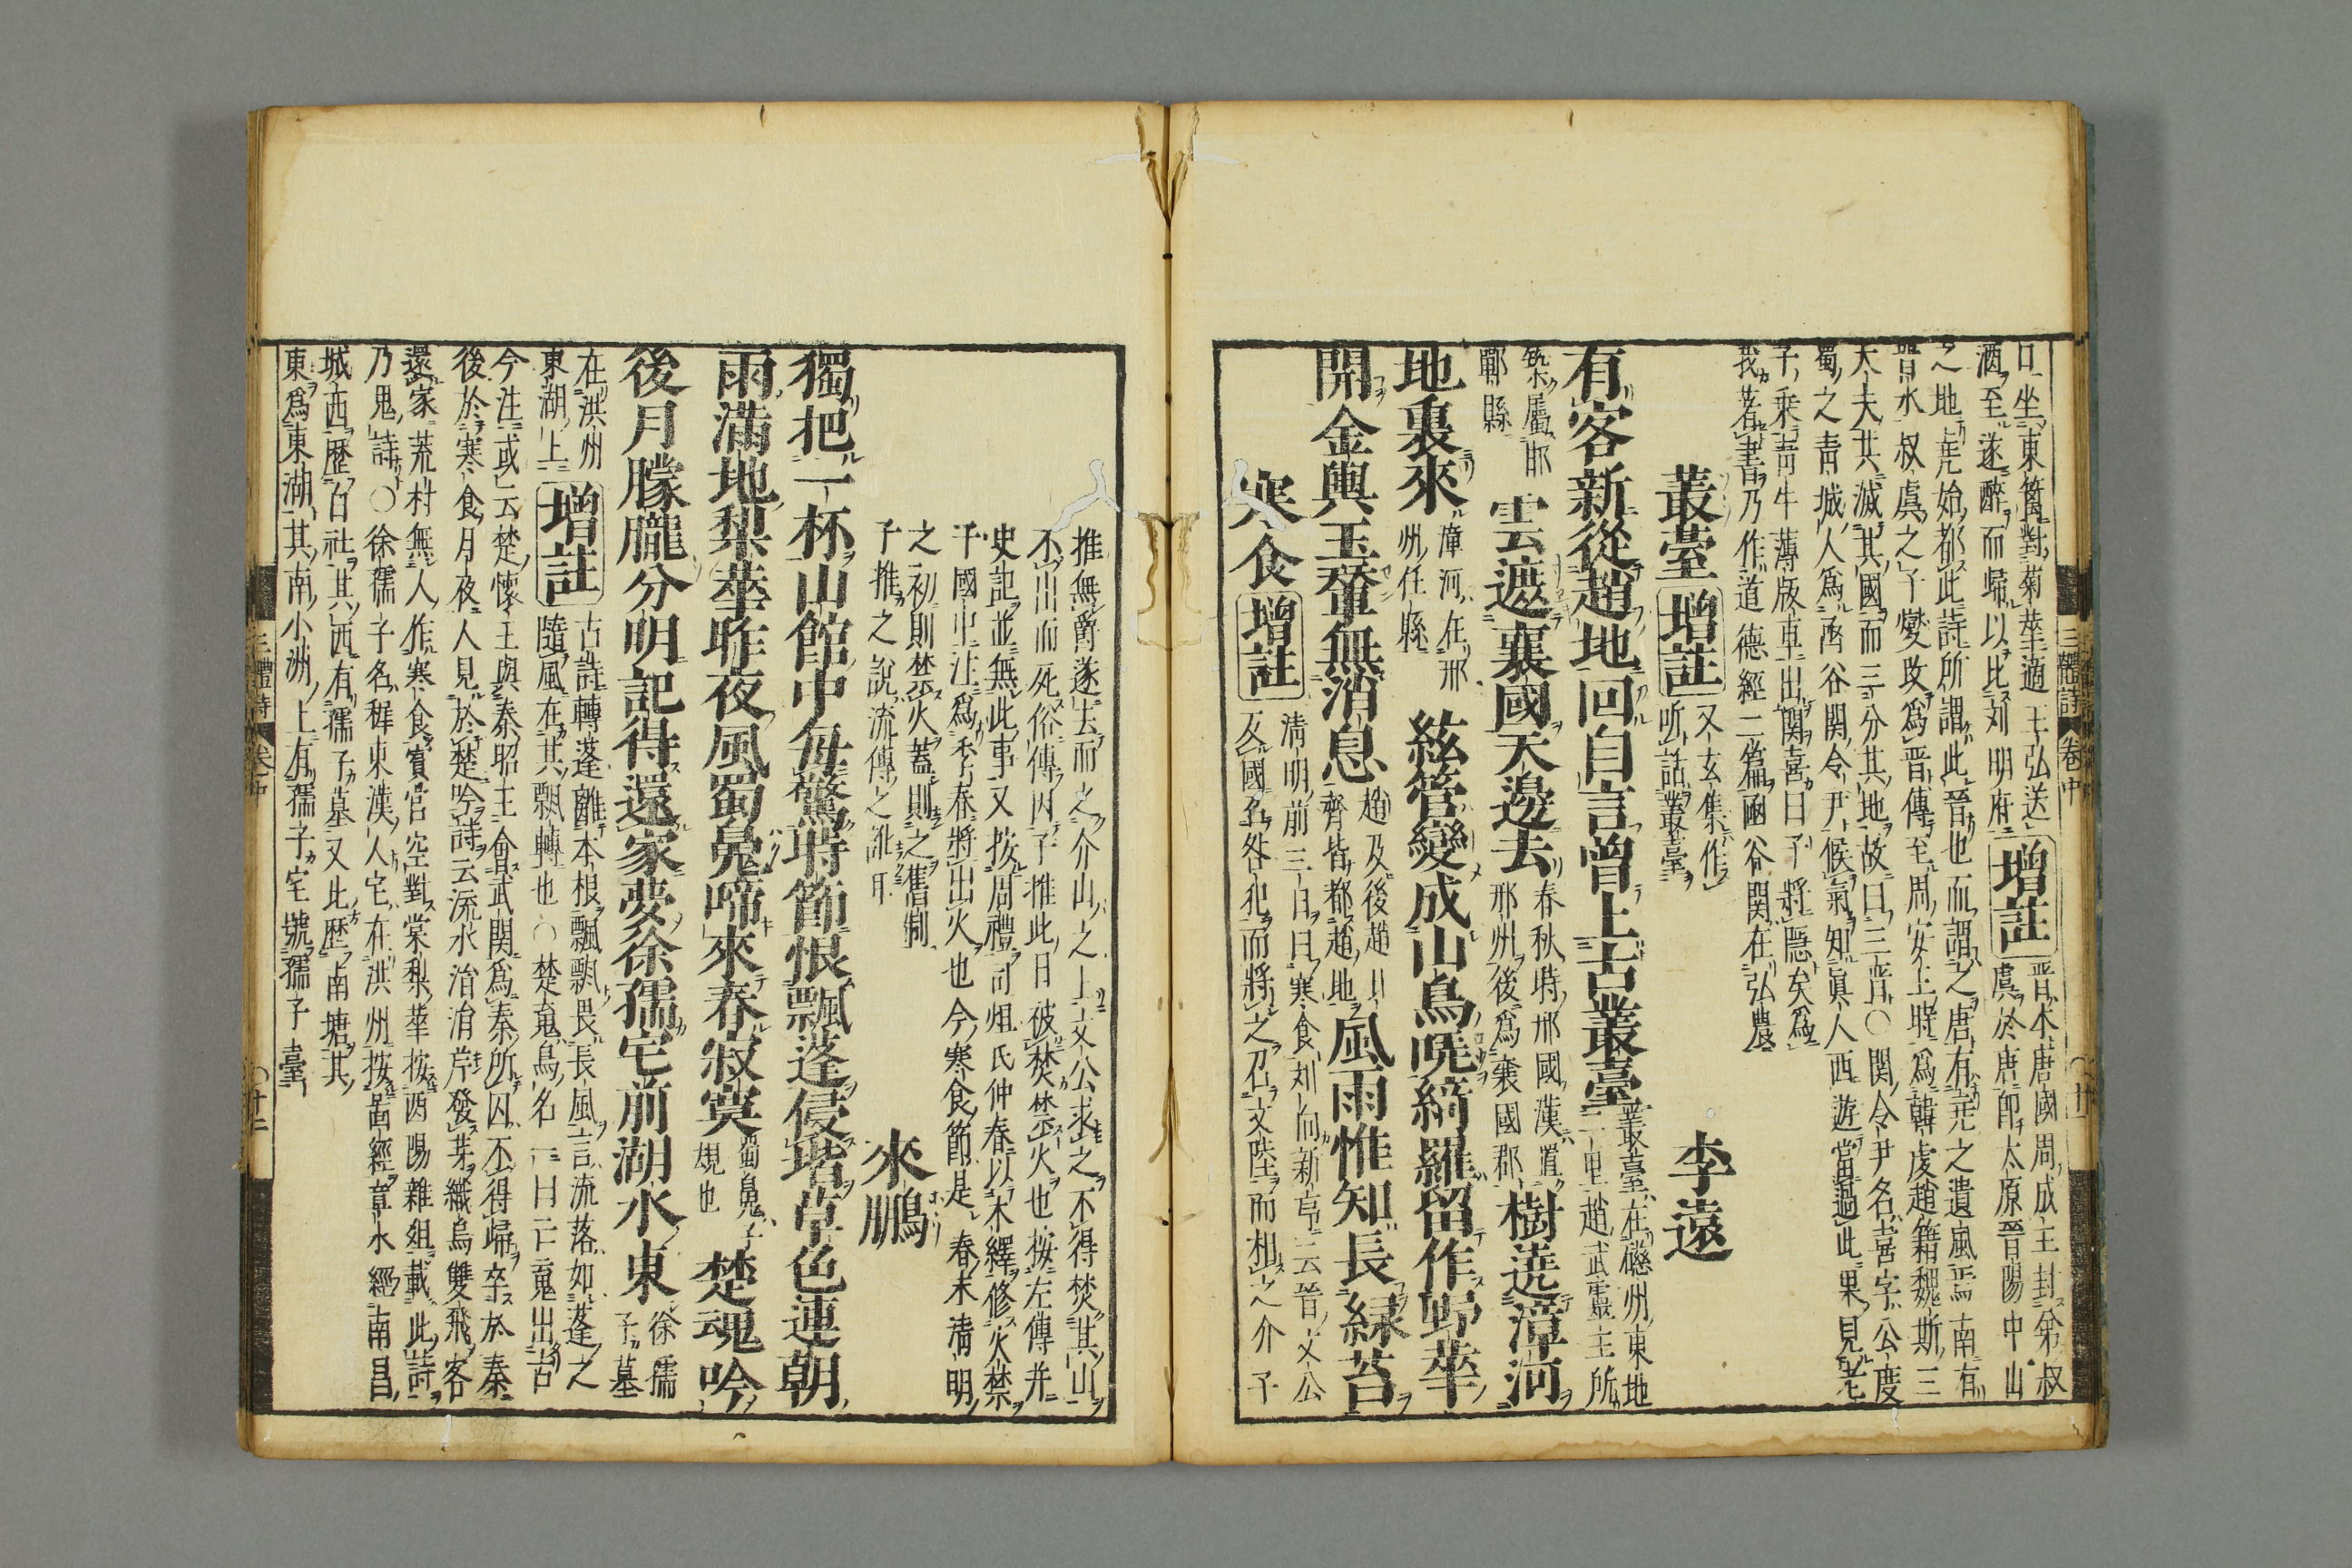 口坐東籬對菊華適王弘送
酒至遂醉而歸以比刘明府
増註
晋本唐國周成王封弟叔
虞於唐即太原晋陽中山
之地尭始都此詩所謂此晋也而謂之唐有尭之遺風焉南有
晋水叔虞之子燮改爲晋傳至周安王時爲韓虔趙籍魏斯三
大夫共滅其國而三分其地故曰三晋○関令尹名喜字公度
蜀之青城人爲凾谷関令尹候氣知眞人西遊當過此果見老
子乘青牛薄版車出関喜曰子將隠矣爲
我著書乃作道德經二篇凾谷関在弘農
叢臺
増註
又玄集作
所話叢臺
李遠
有客新從趙地回自言曾上古叢臺
叢臺在磁州東地
二里趙武霊王所
築屬邯
鄲縣
雲遮襄國天邊去
春秋時邢國漢置
邢州後爲襄國郡
樹遶漳河
地裏來
漳河在邢
州任縣
絃管變成山鳥哢綺羅留作野華
開金輿玉輦無消息
趙及後趙北
齊皆都趙地
風雨惟知長緑苔
寒食
増註
清明前三日曰寒食刘向新序云晋文公
反國名咎犯而將之召文陸而相之介子
三體詩 卷中
推無爵遂去而之介山之上文公求之不得焚其山
不出而死俗傳因子推此日被焚禁火也按左傳并
史記並無此事又按周禮司烜氏仲春以木鐸修火禁
于國中注爲季春將出火也今寒食節是春末清明
之初則禁火蓋則之舊制
子推之說流傳之訛耳
來鵬
獨把一杯山館中毎驚時節恨飄蓬侵堦草色連朝
雨滿地梨華昨夜風蜀魂啼來春寂寞
蜀魂子
規也
楚魂吟
後月朦朧分明記得還家夢徐孺宅前湖水東
徐孺
子墓
在洪州
東湖上
増註
古詩轉蓬離本根飄飄畏長風言流落如蓬之
隨風在其飄轉也○楚魂鳥名一曰亡魂出古
今注或云楚懷王與秦昭王會武関爲秦所囚不得歸卒於秦
後於寒食月夜人見於楚吟詩云流水涓涓芹發芽織烏雙飛客
還家荒村無人作寒食賓宮空對棠梨華按酉陽雜俎載此詩
乃鬼詩○徐孺子名穉東漢人宅在洪州按圖經章水經南昌
城西歴白社其西有孺子墓又比歴南塘其
東爲東湖其南小洲上有孺子宅號孺子臺
三體詩 卷中 ○廿二